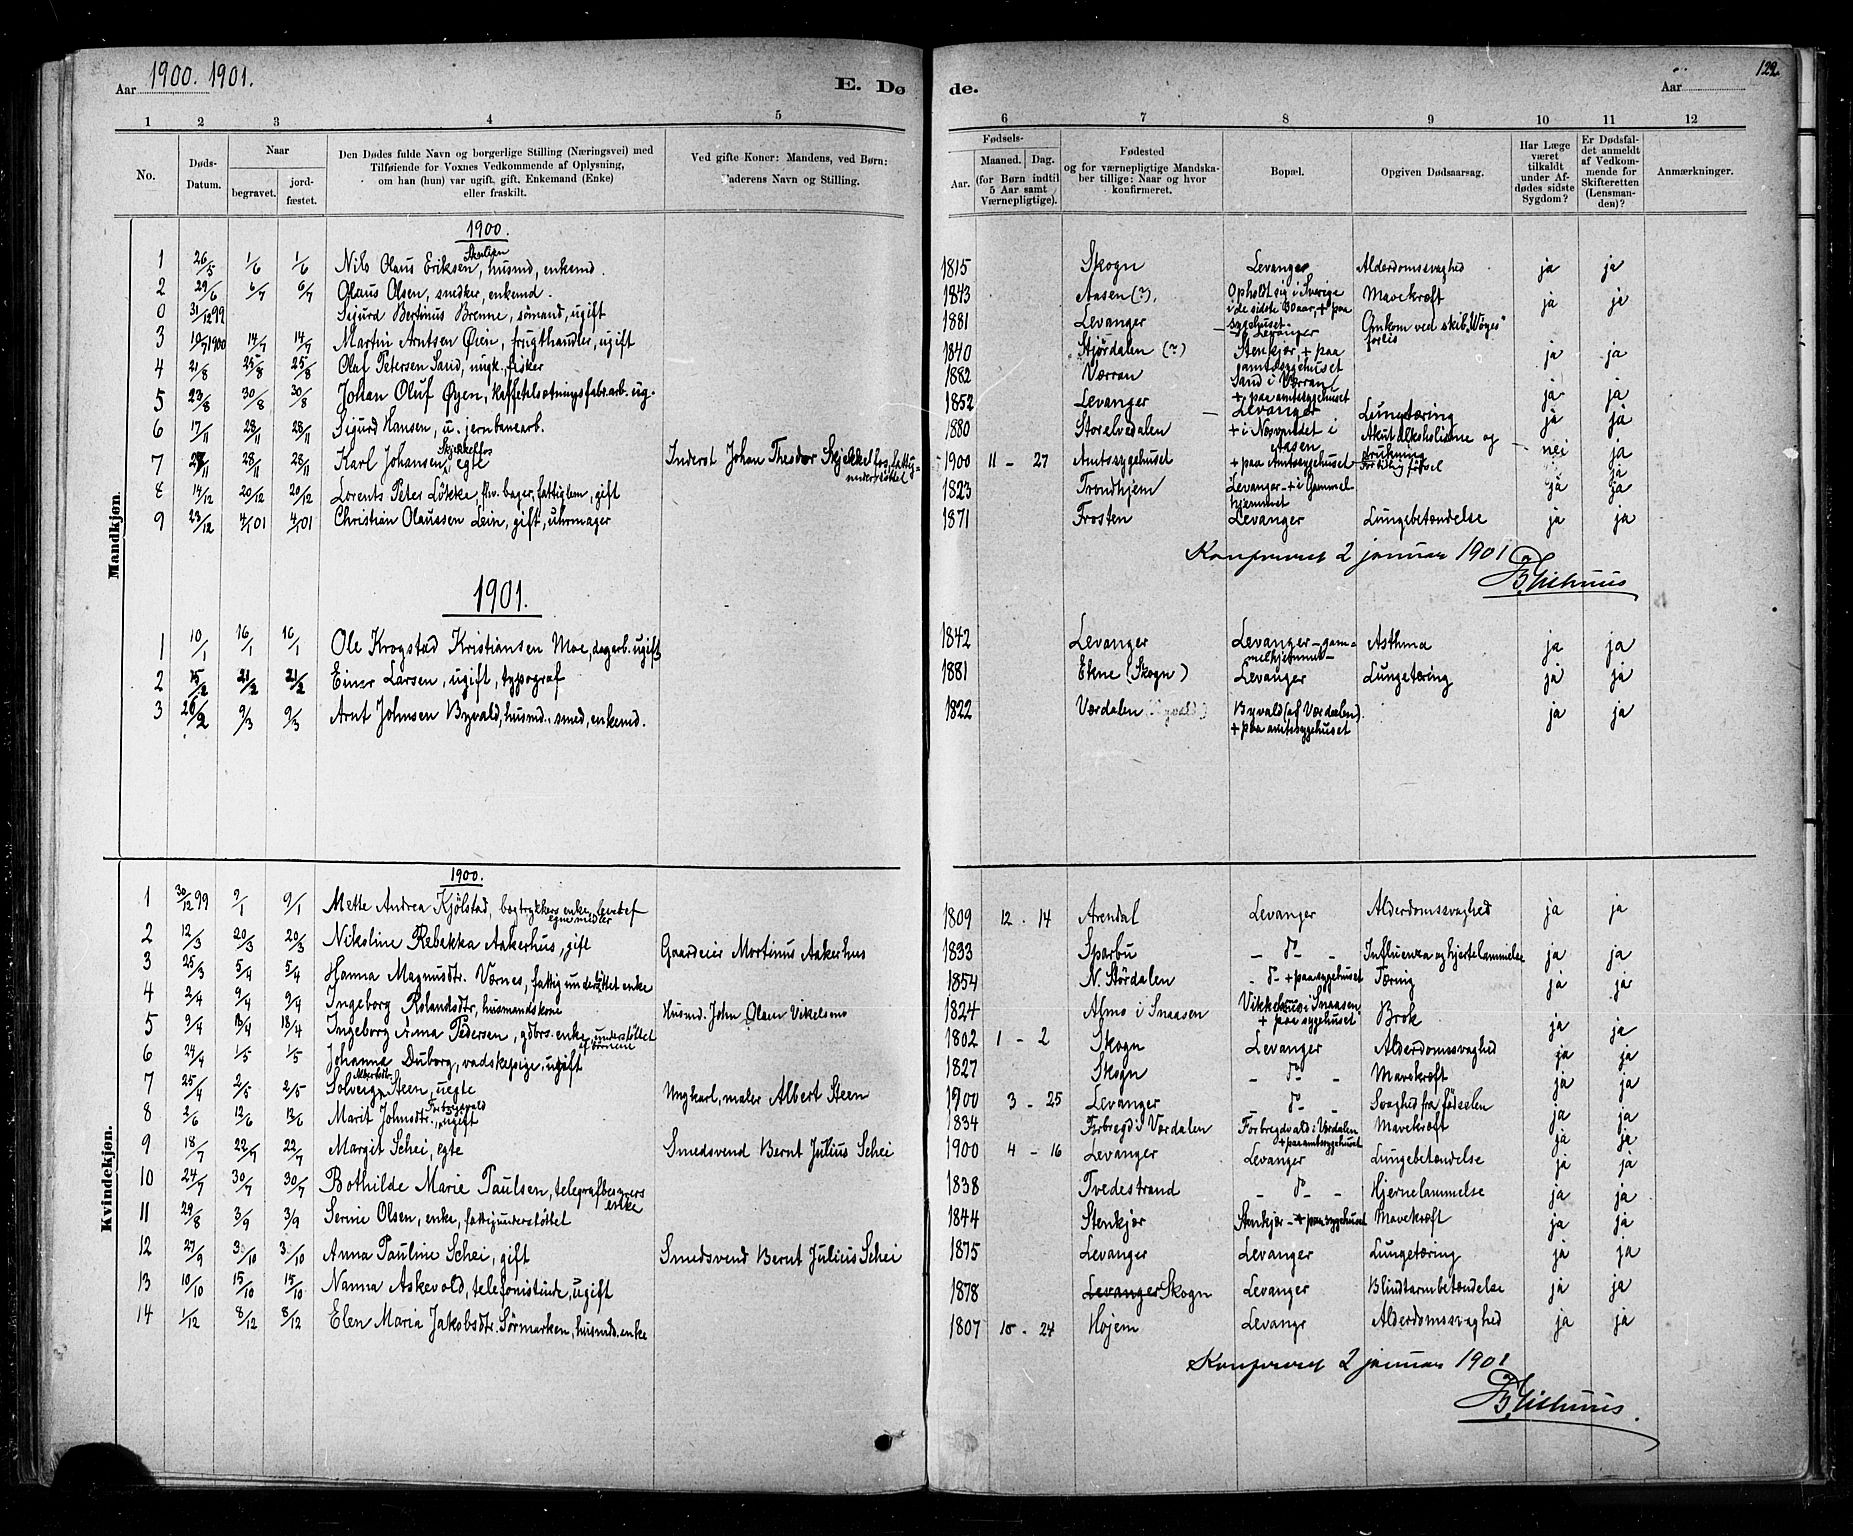 Aar 1900. 1901.
E. Dø
de.
Aar
122.
1 2 3 4 5 6 7 8 9 10 11 12
No.
Døds-Datum.
Naar
begravet.
jordfæstet.
Den Dødes fulde Navn og borgerlige Stilling (Næringsvei) med
Tilføiende for Voxnes Vedkommende af Oplysning,
om han (hun) var ugift, gift, Enkemand (Enke)
eller fraskilt.
Ved gifte Koner: Mandens, ved Børn:
Faderens Navn og Stilling.
Fødsels-
Aar.
Maaned. Dag.
(for Børn indtil
5 Aar samt
Værnepligtige).
Fødested
og for værnepligtige Mandska-
ber tillige: Naar og hvor
konfirmeret.
Bopæl.
Opgiven Dødsaarsag.
Har Læge
været
tilkaldt
under Af-
dødes sidste
Sygdom?
Er Dødsfal-
det anmeldt
af Vedkom-
mende for
Skifteretten
(Lensman-
den)?
Anmærkninger.
Mandkjøn.
1900.
1 26/5 1/6 1/6 Nils Olaus Eriksen, husmd, enkemd. 1815 Skogn Levanger Alderdomssvaghed ja ja
2 29/6 6/7 6/7 Olaus Olsen, snedker, enkemd. 1843 Aasen (?). Opholdt sig i Sverige i de sidste 30 aar, + paa sygehuset. Mavekræft ja ja
0 31/12 99 Sigurd Bertinus Brenne, sømand, ugift 1881 Levanger Levanger Omkom ved skib. "Wöges" forlis
3 10/7 1900 14/7 14/7 Martin Arntsen Øien, frugthandler, ugift 1840 Stjørdalen (?) Stenkjær, + paa amtssygehuset ja ja
4 21/8 25/8 25/8 Olaf Petersen Sand, ungk., fisker 1882 Værran Sand i Værran, + paa amtssygehuset ja ja
5 23/8 30/8 30/8 Johan Oluf Øyen, kaffetilsætningsfabr.arb. ug. 1852 Levanger Levanger Lungetæring ja ja
6 17/11 28/11 28/11 Sigurd Hansen, u. jernbanearb. 1880 Storelvedalen + i Nesvandet i Aasen Akut alkoholisme og drukning nei ja
7 27/11 28/11 28/11 Karl Johansen Skjekkelfos, egte Inderst Johan Theodor Skjekkelfos, fattigunderstøttet 1900 11 - 27 Amtssygehuset + paa Amtssygehuset For tidlig fødsel ja
8 14/12 20/12 20/12 Lorents Peter Løkke, fhv. bager, fattiglem, gift 1823 Trondhjem Levanger + i Gammelhjemmet ja ja
9 23/12 4/1 01 4/1 01 Christian Olaussen Lein, gift, uhrmager 1871 Frosten Levanger Lungebetændelse ja ja
Konfereret 2 januar 1901
1901.
1 10/1 16/1 16/1 Ole Krogstad Kristiansen Moe, dagarb. ugift 1842 Levanger Levanger - gammelhjemmet - Asthma ja ja
2 15/2 21/2 21/2 Einar Larsen, ugift, typograf 1881 Ekne (Skogn) Levanger Lungetæring ja ja
3 26/2 9/3 9/3 Arnt Johnsen Byvald, husmd., smed, enkemd. 1822 Værdalen (Byvald) Byvald (af Værdalen). + paa amtssygehuset ja ja
Kvindekjøn.
1900.
1 30/12 99 9/1 9/1 Mette Andrea Kjølstad, bogtrykkers enke, levede af egne midler 1809 12 - 14 Arendal Levanger Alderdomssvaghed ja ja
2 12/3 20/3 20/3 Nikoline Rebakka Aakerhus, gift Gaardeier Mortinus Aakerhus 1833 Sparbu - do - Influenza og hjertelammelse ja ja
3 25/3 5/4 5/4 Hanna Magnusdtr. Værnes, fattigunderstøttet enke 1854 N. Stördalen - do + paa sygehuset Tæring ja ja
4 2/4 9/4 9/4 Ingeborg Rolandsdtr, husmandskone Husmd. John Olsen Vikelsmo 1824 Almo i Snaasen i Snaasen + paa sygehuset Brok ja ja
5 9/4 18/4 18/4 Ingeborg Anna Pedersen, gdbrs. enke, understøttet af børnene 1802 1 - 2 Skogn Levanger Alderdomssvaghed ja ja
6 24/4 1/5 1/5 Johanna Duborg, vadskepige, ugift 1827 Skogn - do - Mavekræft ja ja
7 25/4 2/5 2/5 Solveig Albertsdtr. Steen, uegte Ungkarl, maler Albert Steen 1900 3 - 25 Levanger - do - Svaghed fra fødselen ja ja
8 2/6 12/6 12/6 Marit Johnsdtr. Forbregdvald, ugift 1834 Forbregd i Værdalen Forbregdvald i Værdalen + paa amtssygehuset Mavekræft ja ja
9 18/7 22/7 22/7 Margit Schei, egte Smedsvend Bernt Julius Schei 1900 4 - 16 Levanger Levanger Lungebetændelse ja ja
10 24/7 30/7 30/7 Bothilde Marie Paulsen, telegrafbestyrers enke 1838 Tvedestrand - do - Hjernelammelse ja ja
11 29/8 3/9 3/9 Serine Olsen, enke, fattigunderstøttet 1844 Stenkjær Stenkjær - + paa sygehuset Mavekræft ja ja
12 27/9 3/10 3/10 Anna Pauline Schei, gift Smedsvend Bernt Julius Schei 1875 Levanger Levanger Lungetæring ja ja
13 10/10 15/10 15/10 Nanna Askevold, telefonistinde, ugift 1878 Levanger Skogn Levanger Blindtarmbetændelse ja ja
14 1/12 8/12 8/12 Elen Maria Jakobsdtr. Sørmarken, husmds. enke 1807 10 - 24 Højem Levangr Alderdomssvaghed ja ja
Konfereret 2 januar 1901